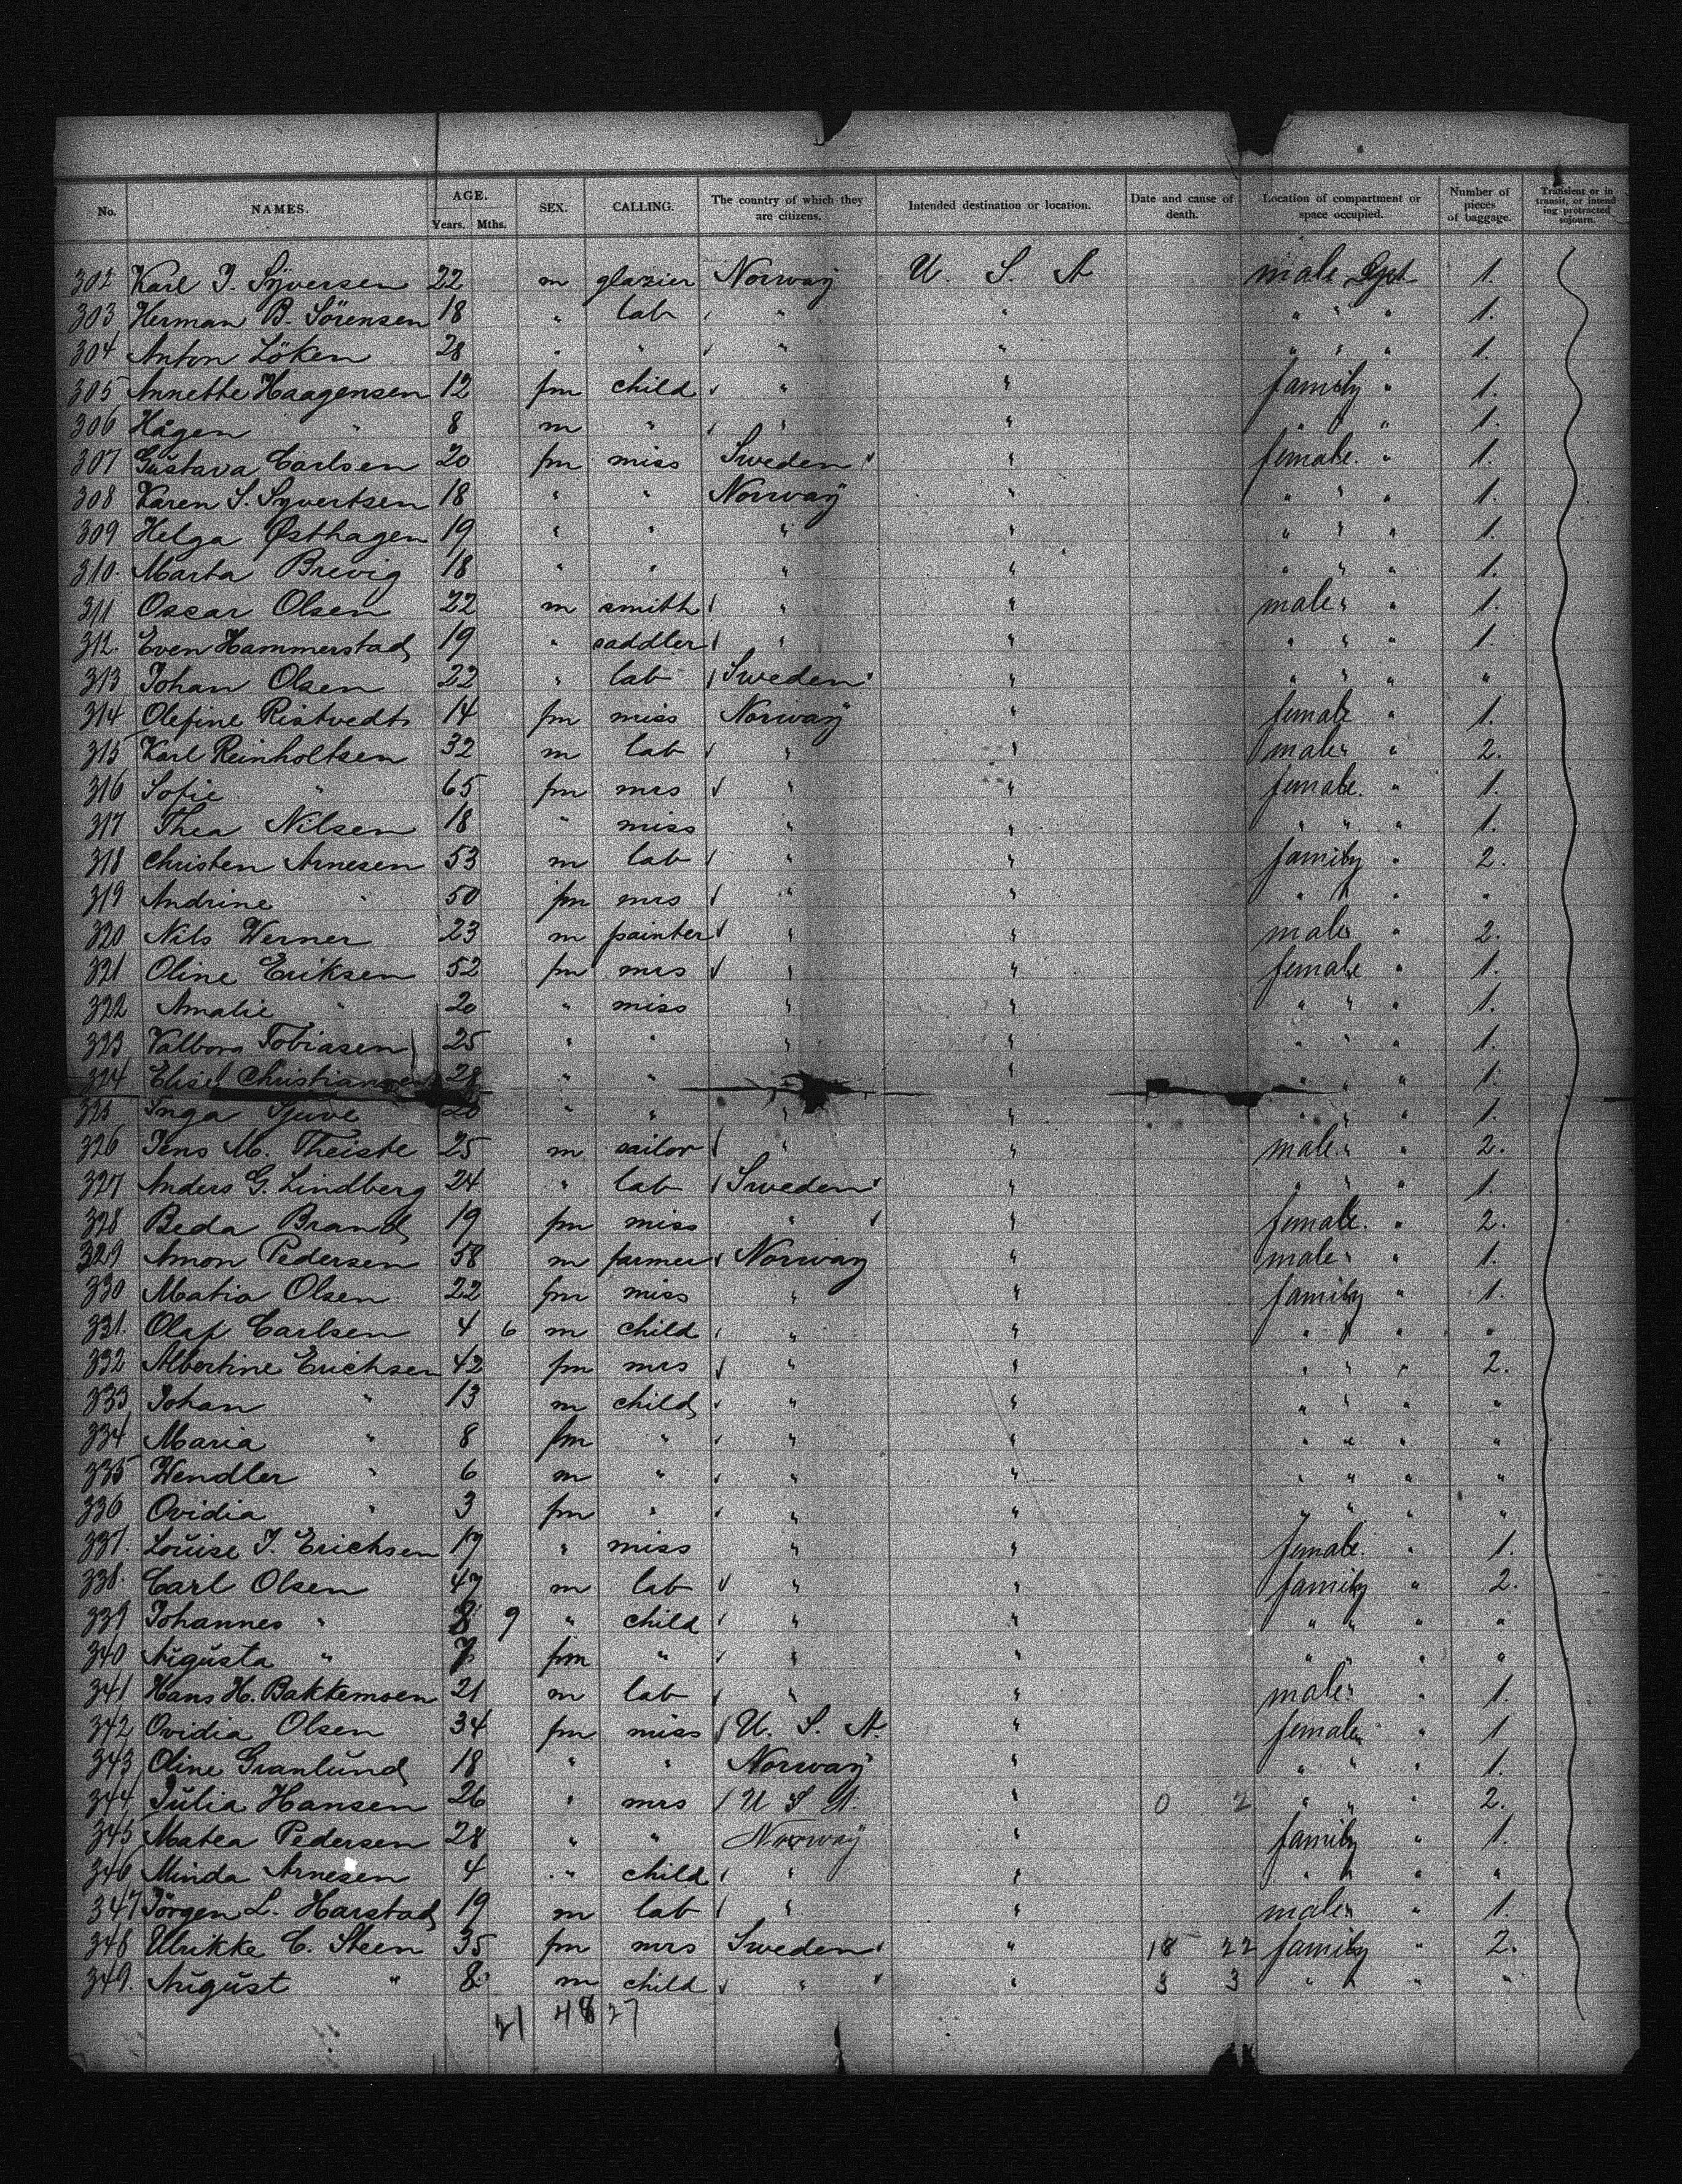 No. NAMES. AGE. Years. Mths. SEX. CALLING. The country of which they are citizens. Intended destination or location. Date and cause of death. Location of compartment or space occupied. Number of pieces of baggage. Transient or in transit, or intending protracted sojourn.
302 Karl J. Syversen 22 m glazier Norway U. S. A male Dpt 1.
303 Herman B. Sörensen 18 " lab " " " " " 1.
304 Anton Löken 28 " " " " " " " 1.
305 Annette Haagensen 12 fm child " " family " 1.
306 Hågen " 8 m " " " " " " 1.
307 Gustava Carlsen 20 fm miss Sweden " female " 1.
308 Karen S. Syvertsen 18 " " Norway " " " " 1.
309 Helga Østhagen 19 " " " " " " " 1.
310. Marta Brevig 18 " " " " " " " 1.
311 Oscar Olsen 22 m smith " " male " " 1.
312. Even Hammerstad 19 " saddler " " " " " 1.
313 Johan Olsen 22 " lab Sweden " " " " "
314 Olefine Ristvedt 14 fm miss Norway " female " 1.
315 Karl Reinholtsen 32 m lab " " male " " 2.
316 Sofie " 65 fm mrs " " female " 1.
317 Thea Nilsen 18 " miss " " " " " 1.
318 Christen Arnesen 53 m lab " " family " 2.
319 Andrine " 50 fm mrs " " " " " "
320 Nils Werner 23 m painter " " male " 2.
321 Oline Eriksen 52 fm mrs " " female " 1.
322 Amalie " 20 " miss " " " " " 1.
323 Valborg Tobiasen 25 " " " " " " " 1.
324 Elise Christiansen 28 " " " " " " 1.
325 Inga 20 " " " " " " " 1.
326 Jens M. Theiste 25 m sailor " " male " " 2.
327 Anders G. Lindberg 24 " lab Sweden " " " " 1.
328 Beda Brand 19 fm miss " " female " 2.
329 Amon Pedersen 58 m farmer Norway " male " " 1.
330 Matia Olsen 22 fm miss " " family " 1.
331. Olaf Carlsen 4 6 m child " " " " " "
332 Albertine Erichsen 42 fm mrs " " " " " 2.
333 Johan " 13 m child " " " " " "
334 Maria " 8 fm " " " " " " "
335 Wendler " 6 m " " " " " " "
336 Ovidia " 3 fm " " " " " " "
337. Louise J. Erichsen 17 " miss " " female " 1.
338. Carl Olsen 47 m lab " " family " 2.
339 Johannes " 8 9 " child " " " " " "
340 Augusta " 7 fm " " " " " " "
341 Hans H. Bakkemoen 21 m lab " " male " " 1.
342 Ovidia Olsen 34 fm miss U. S. A. " female " 1
343 Oline Granlund 18 " " Norway " " " " 1.
344 Julia Hansen 26 " mrs U S A. " 0 2 " " " 2.
345 Matea Pedersen 28 " " Norway " family " 1.
346 Minda Arnesen 4 " child " " " " " "
347 Jörgen L. Harstad 19 m lab " " male " " 1.
348 Ulrikke C. Steen 35 fm mrs Sweden " 18 22 family " 2.
349. August " 8 m child " " 3 3 " " " "
21 48 27